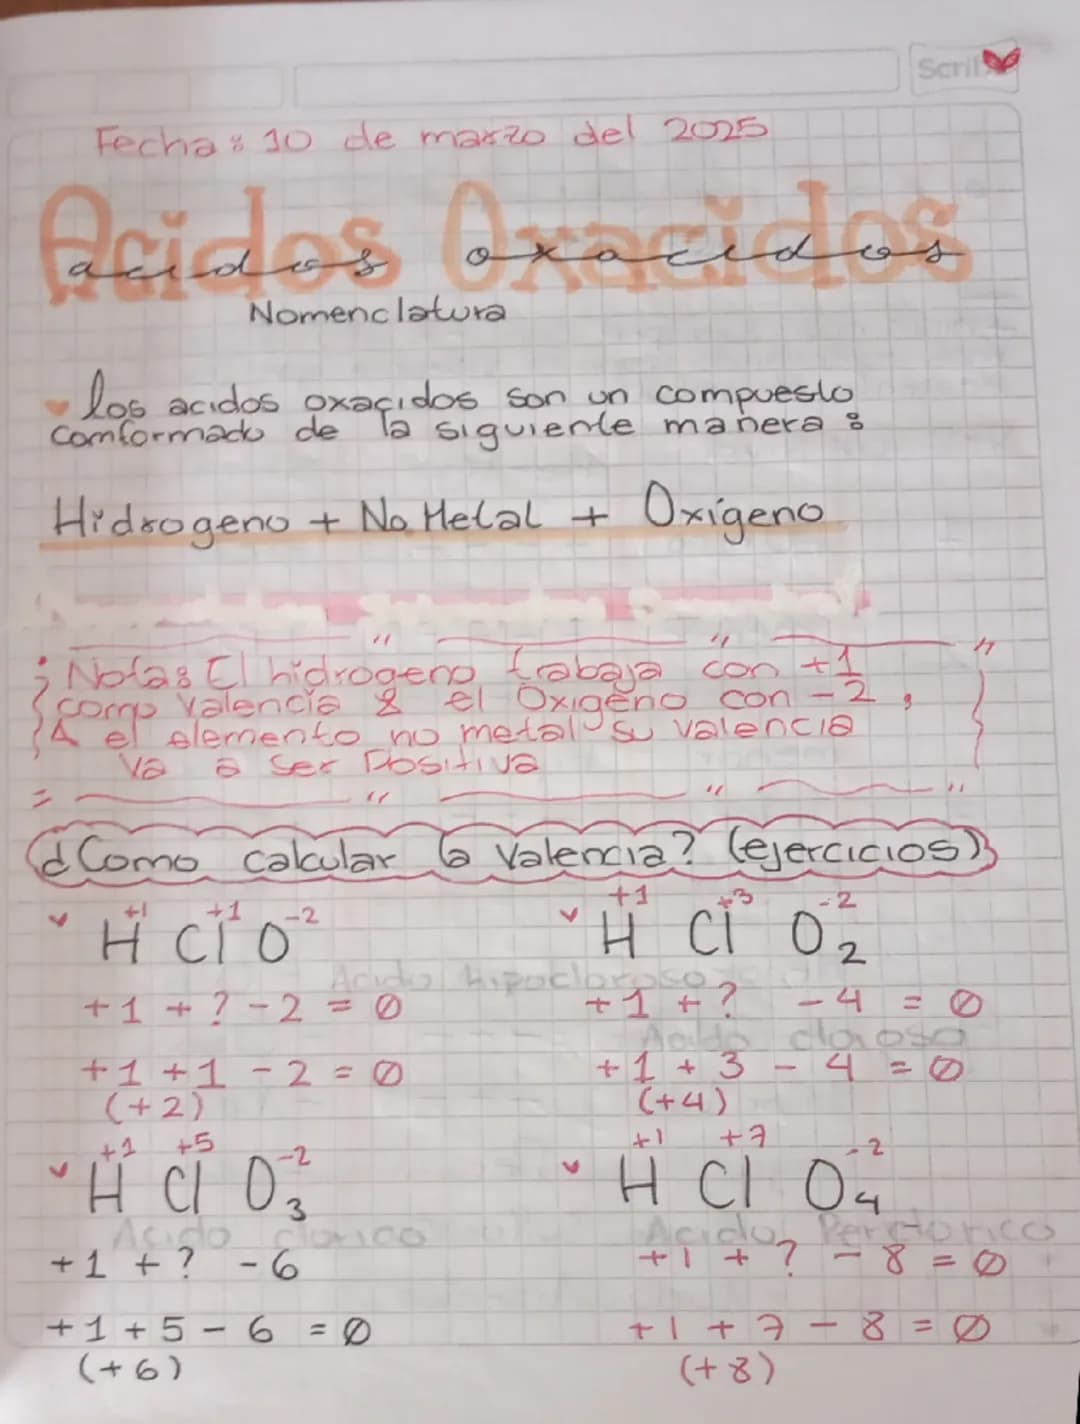 Scrib
Fecha: 10 de marzo del 2025
Acidos Oxacidos
acidos oxacidos
Nomenclatura
los acidos oxacidos son un compuesto
comformado de la siguiente manera:
Hidrogeno + No Metal + Oxígeno
Nota: El hidrogeno trabaja con +1
como valencia & el Oxigeno con -2,
A el elemento no metal su valencia
va a ser Positiva
¿Como calcular la valencia? (ejercicios)
+1 +1 -2
H Cl O
Acido hipocloroso
+1 + ? - 2 = 0
+1 +1 - 2 = 0
(+2)
+1 +3 -2
H Cl O2
+1 + ? - 4 = 0
Acido cloroso
+1 + 3 - 4 = 0
(+4)
+1 +5 -2
H Cl O3
Acido clorico
+1 + ? - 6
+1 + 5 - 6 = 0
(+6)
+1 +7 -2
H Cl O4
Acido Perclorico
+1 + ? - 8 = 0
+1 + 7 - 8 = 0
(+8)